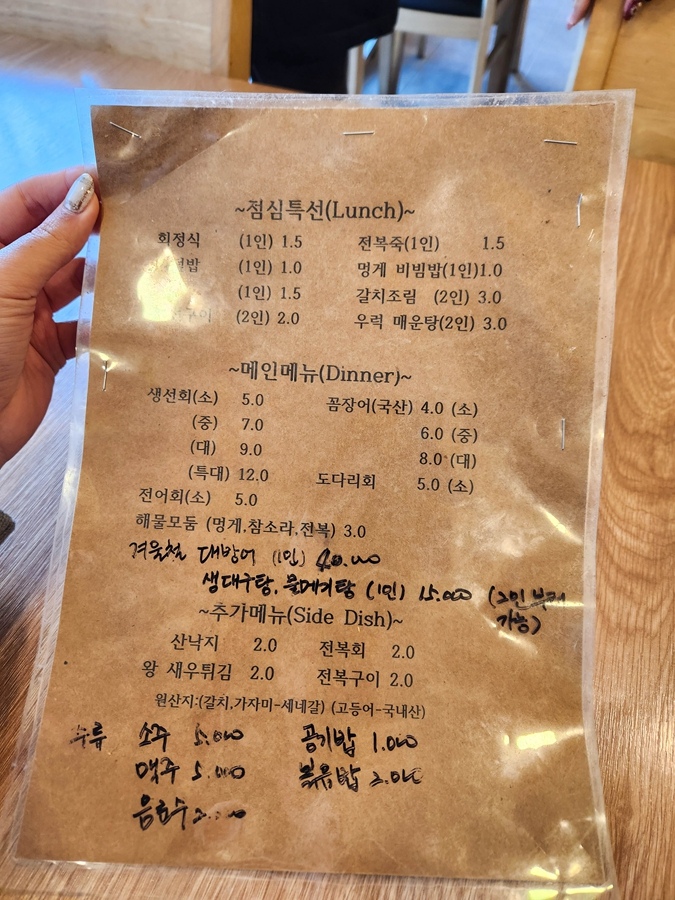 ~점심특선(Lunch)~
회정식 (1인) 1.5 전복죽(1인) 1.5
(1인) 1.0 멍게 비빔밥(1인)1.0
(1인) 1.5 갈치조림 (2인) 3.0
(2인) 2.0 우럭 매운탕(2인) 3.0
~메인메뉴(Dinner)~
생선회(소) 5.0 꼼장어(국산) 4.0 (소)
(중) 7.0 6.0 (중)
(대) 9.0 8.0 (대)
(특대) 12.0 도다리회 5.0 (소)
전어회(소) 5.0
해물모둠 (멍게,참소라,전복) 3.0
겨울철 대방어 (1인) 40.000
생대구탕, 물메기탕 (1인) 15.000 (2인 부터
가능)
~추가메뉴(Side Dish)~
산낙지 2.0 전복회 2.0
왕 새우튀김 2.0 전복구이 2.0
원산지:(갈치,가자미-세네갈) (고등어-국내산)
주류 소주 5.000 공기밥 1.000
맥주 5.000 볶음밥
음료수